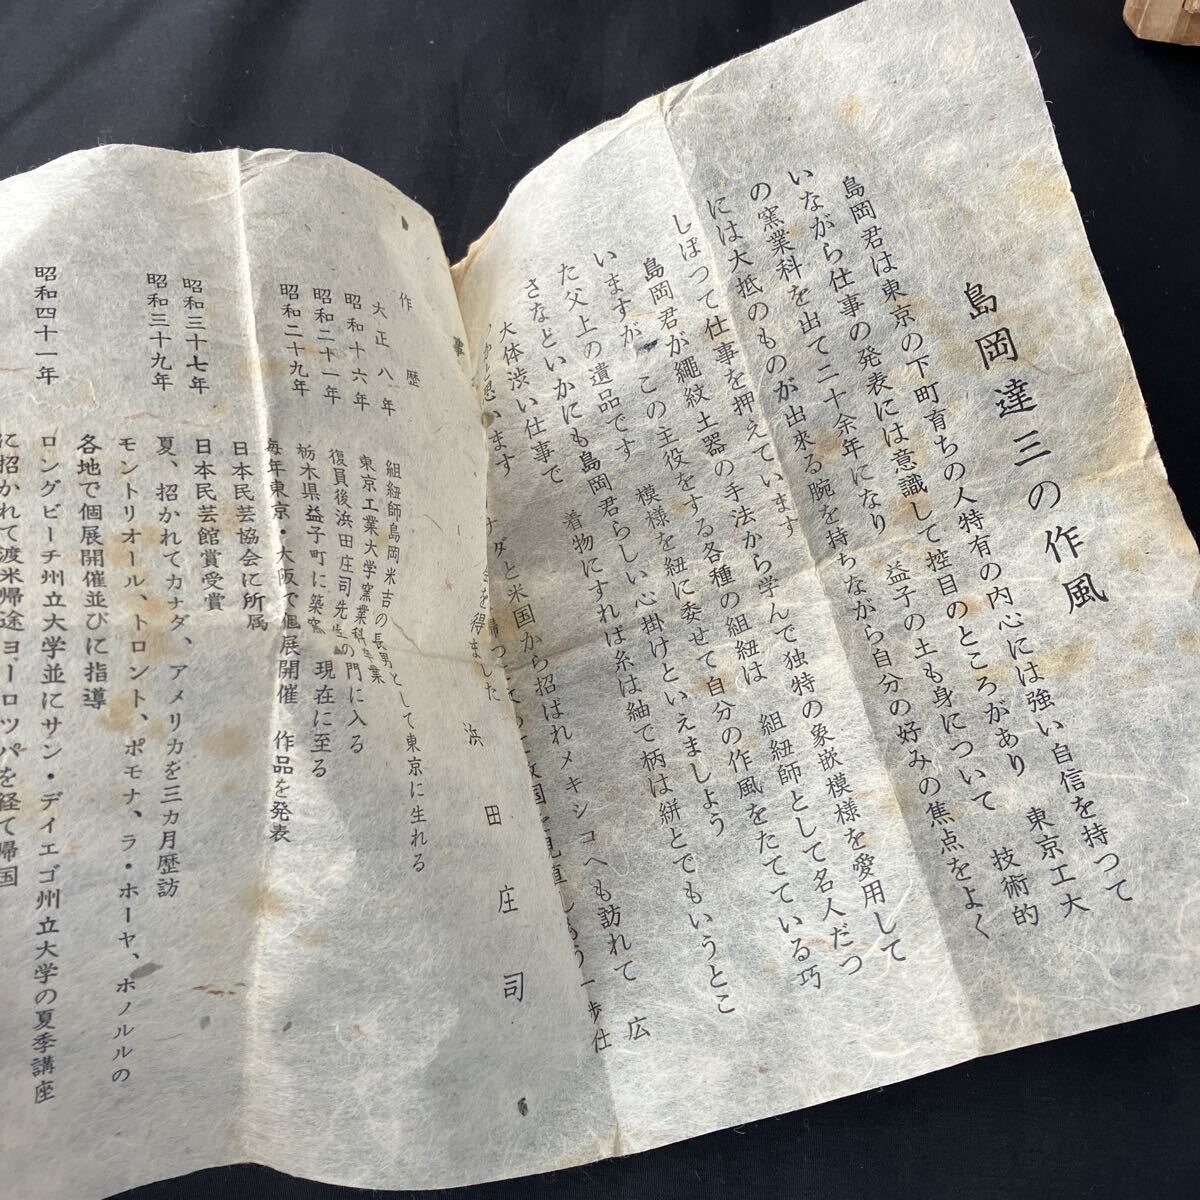 島岡達三の作風
島岡君は東京の下町育ちの人特有の内心には強い自信を持つて
いながら仕事の発表には意識して控目のところがあり 東京工大
の窯業科を出て二十余年になり 益子の土も身について 技術的
には大抵のものが出來る腕を持ちながら自分の好みの焦点をよく
しぼつて仕事を押えています
島岡君が繩紋土器の手法から学んで独特の象嵌模様を愛用して
いますが この主役をする各種の組紐は 組紐師として名人だつ
た父上の遺品です 模様を紐に委せて自分の作風をたてている巧
さなどいかにも島岡君らしい心掛けといえましよう
大体渋い仕事で 着物にすれば糸は紬で柄は絣とでもいうとこ
と思います
ナダと米国から招ばれメキシコへも訪れて 広
見直しもう一歩仕
を得ました
浜田庄司
作歴
大正八年 組紐師島岡米吉の長男として東京に生れる
昭和十六年 東京工業大学窯業科卒業
昭和二十一年 復員後浜田庄司先生の門に入る
昭和二十九年 栃木県益子町に築窯 現在に至る
毎年東京・大阪で個展開催 作品を発表
日本民芸協会に所属
昭和三十七年 日本民芸館賞受賞
昭和三十九年 夏、招かれてカナダ、アメリカを三カ月歴訪
モントリオール、トロント、ポモナ、ラ・ホーヤ、ホノルルの
各地で個展開催並びに指導
昭和四十一年 ロングビーチ州立大学並にサン・デイエゴ州立大学の夏季講座
に招かれて渡米帰途ヨーロツパを経て帰国